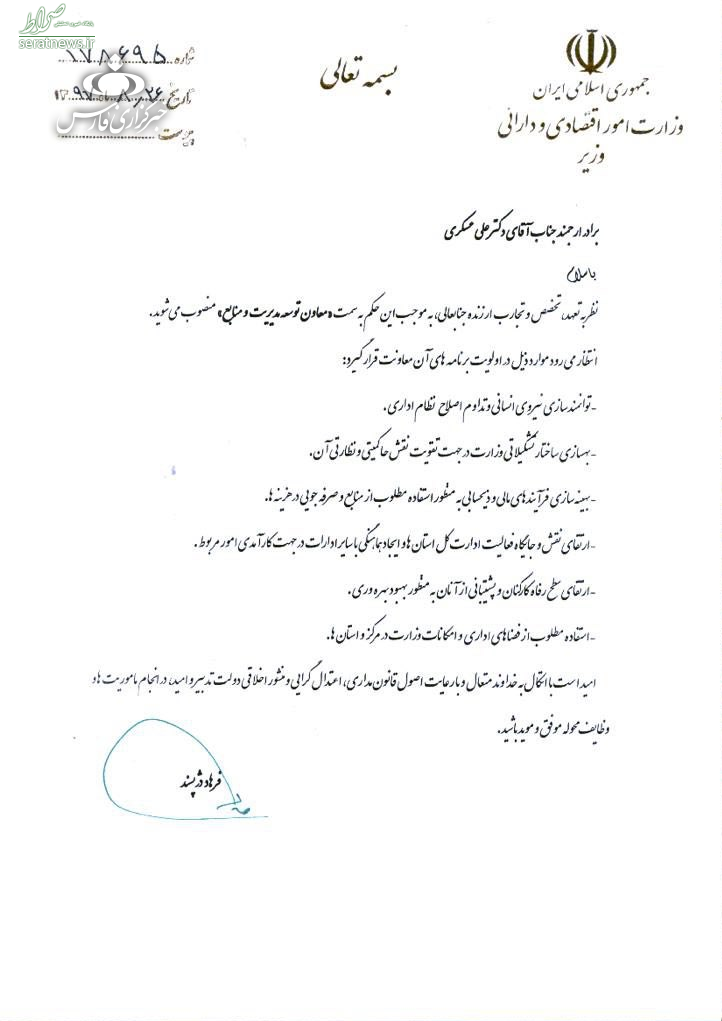 صراط
seratnews.ir
بسمه تعالی
جمهوری اسلامی ایران
وزارت امور اقتصادی و دارائی
وزیر
شماره ۱۷۸۶۹۵
تاریخ ۱۳۹۷/۰۸/۲۶
پیوست
خبرگزاری فارس
برادر ارجمند جناب آقای دکتر علی عسکری
با سلام
نظر به تعهد، تخصص و تجارب ارزنده جنابعالی، به موجب این حکم به سمت «معاون توسعه مدیریت و منابع» منصوب می شوید.
انتظار می رود موارد ذیل در اولویت برنامه های آن معاونت قرار گیرد:
-توانمندسازی نیروی انسانی و تداوم اصلاح نظام اداری.
-بهسازی ساختار تشکیلاتی وزارت در جهت تقویت نقش حاکمیتی و نظارتی آن.
-بهینه سازی فرآیندهای مالی و ذیحسابی به منظور استفاده مطلوب از منابع و صرفه جویی در هزینه ها.
-ارتقای نقش و جایگاه فعالیت ادارت کل استان ها و ایجاد هماهنگی با سایر ادارات در جهت کارآمدی امور مربوط.
-ارتقای سطح رفاه کارکنان و پشتیبانی از آنان به منظور بهبود بهره وری.
-استفاده مطلوب از فضاهای اداری و امکانات وزارت در مرکز و استان ها.
امید است با اتکال به خداوند متعال و با رعایت اصول قانون مداری، اعتدال گرایی و منشور اخلاقی دولت تدبیر و امید، در انجام ماموریت ها و
وظایف محوله موفق و موید باشید.
فرهاد دژپسند